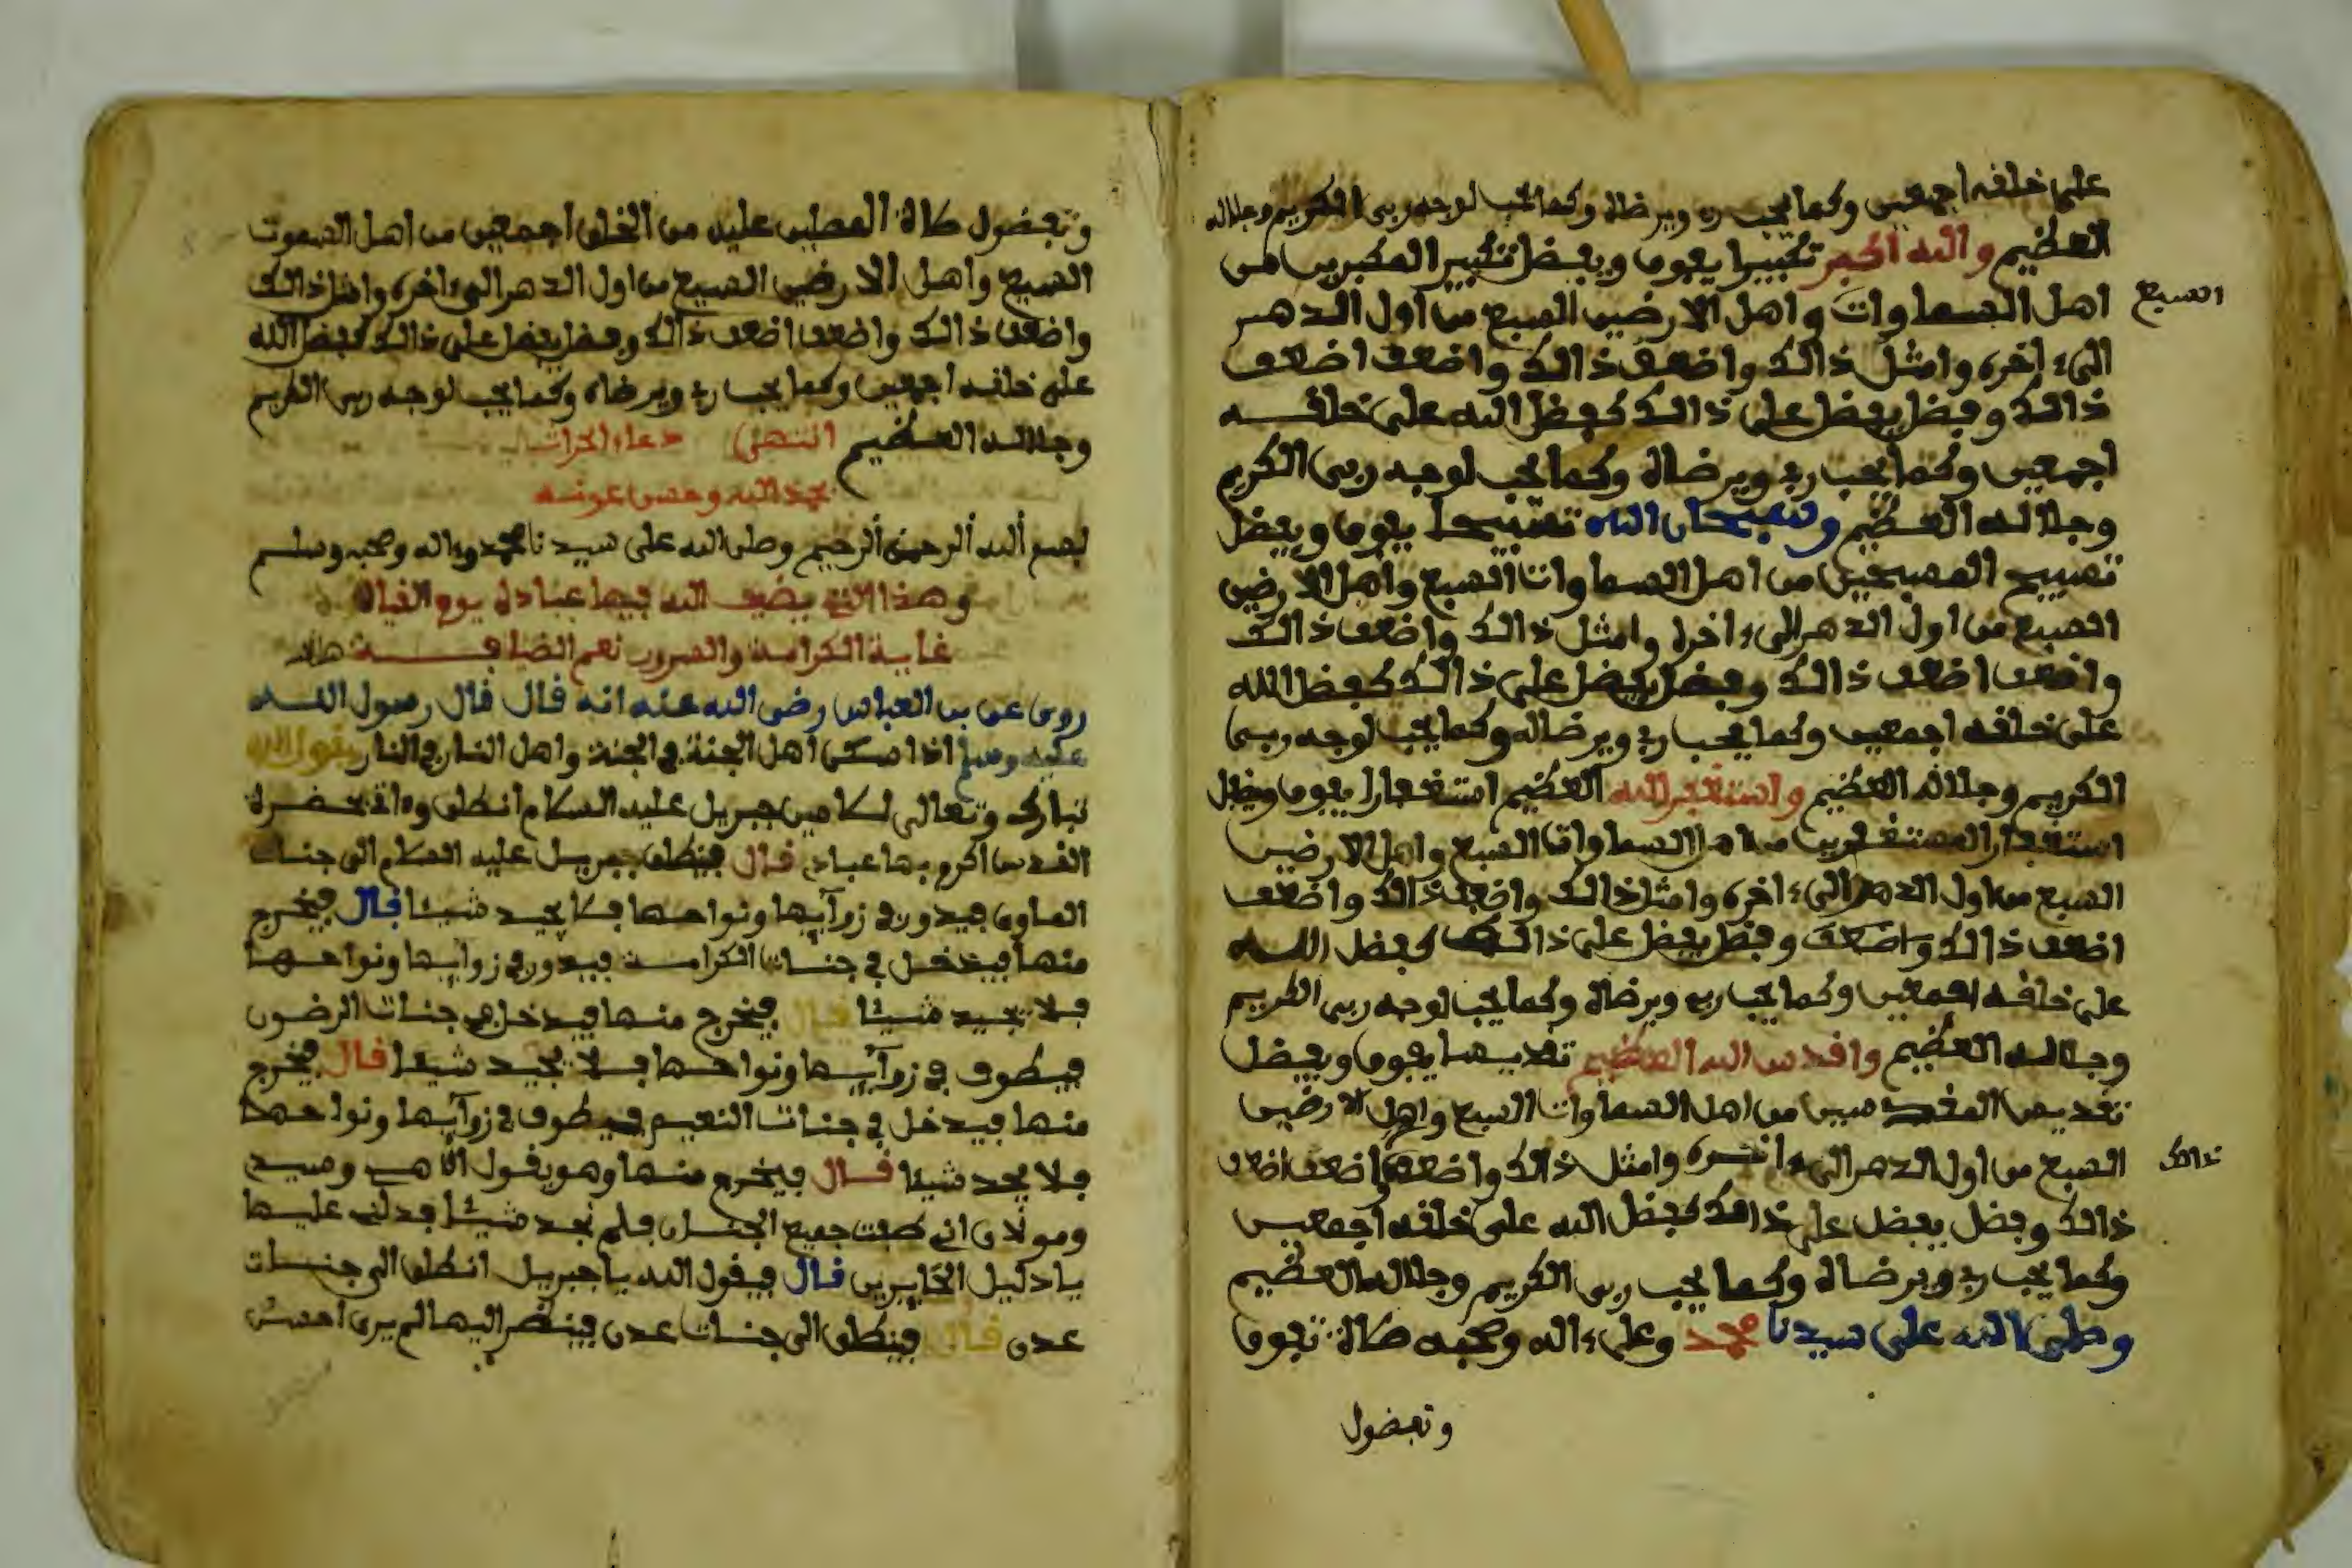 على خلفه اجمعين وكما يحب ربه ويرضاه وكما يحب لوجه ربي الكريم وجلاله
العظيم والله اكبر تكبيرا يفوق ويفضل تكبير المكبرين من
اهل السماوات واهل الارضين السبع من اول الدهر
السبع
الىء اخره وامثل ذالك واضعف ذالك واضعف اضعف
ذالك وفضل يفضل على ذالك كفضل الله على خلفه
اجمعين وكما يحب ربه ويرضاه وكما يحب لوجه ربي الكريم
وجلاله العظيم وسبحان الله تسبيحا يفوق ويفضل
تسبيح المسبحين من اهل السماوات السبع واهل الارضين
السبع من اول الدهر الىء اخره وامثل ذالك واضعف ذالك
واضعف اضعف ذالك وفضل يفضل على ذالك كفضل الله
على خلفه اجمعين وكما يحب ربه ويرضاه وكما يحب لوجه ربي
الكريم وجلاله العظيم واستغفر الله العظيم استغفارا يفوق ويفضل
استغفار المستغفرين من اهل السماوات السبع واهل الارضين
السبع من اول الدهر الىء اخره وامثل ذالك واضعف ذالك واضعف
اضعف ذالك واضعف وفضل يفضل على ذالك كفضل الله
على خلفه اجمعين وكما يحب ربه ويرضاه وكما يحب لوجه ربي الكريم
وجلاله العظيم واقدس الله العظيم تقديسا يفوق ويفضل
تقديس المقدسين من اهل السماوات السبع واهل الارضين
السبع من اول الدهر الىء اخره وامثل ذالك واضعف واضعف اضعف
ذالك
ذالك وفضل يفضل على ذالك كفضل الله على خلفه اجمعين
وكما يحب ربه ويرضاه وكما يحب ربي الكريم وجلاله العظيم
وصلى الله على سيدنا محمد وعلىء اله وصحبه صلاة تفوق
وتفضول
وتفضول صلاة المصلين عليه من الخلق اجمعين من اهل السموت
السبع واهل الارضين السبع من اول الدهر الىء اخره وامثل ذالك
واضعف ذالك واضعف اضعف ذالك وفضل يفضل على ذالك كفضل الله
على خلفه اجمعين وكما يحب ربه ويرضاه وكما يحب لوجه ربي الكريم
وجلاله العظيم انتهى دعاء
بحمد الله وحسن عونه
بسم الله الرحمن الرحيم وصلى الله على سيدنا محمد وءاله وصحبه وسلم
وهذا الذي يضيف الله فيها عباده يوم القيامة
غاية الكرامة والسرور نعم الضيافة
روى عن بن العباس رضي الله عنه انه قال قال رسول الله
عليه وسلم اذا سكن اهل الجنة في الجنة واهل النار في النار يقول الله
تبارك وتعالى لامين جبريل عليه السلام انطلق وءات بحضرة
القدس اكرم بها عبادي قال فينطلق جبريل عليه السلام الى جنات
الماوى فيدور في زوآيها ونواحها فلا يجد شيئا قال فيخرج
منها فيدخل في جنات الكرامة فيدور في زوايها ونواحها
فلا يجد شيئا قال فيخرج منها فيدخل في جنات الرضون
فيطوف في زوآيها ونواحها فلا يجد شيئا قال فيخرج
منها فيدخل في جنات النعيم فيطوف في زوآيها ونواحها
فلا يجد شيئا قال فيخرج منها وهو يقول الاهي وسيدي
ومولاي اني طفت جميع الجنان فلم نجد شيئا فدلني عليها
يا دليل الحايرين قال فيقول الله يا جبريل انطلق الى جنات
عدن قال فينطلق الى جنات عدن فينظر اليها لم يرى احسن